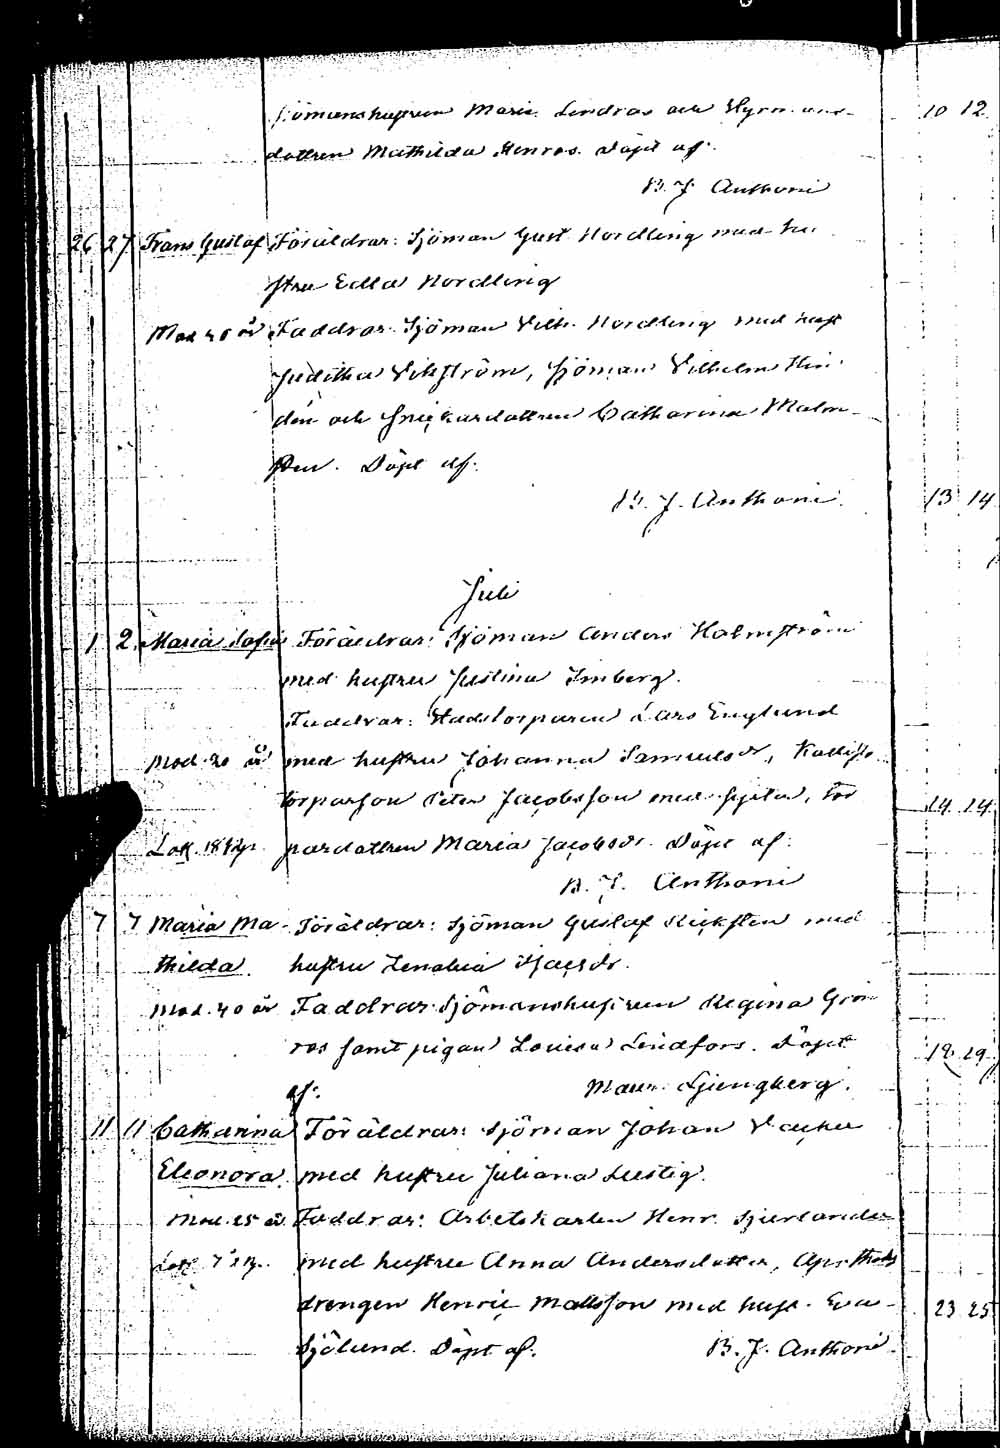 sjömanshustrun Maria Lindros och Hyrmans-
dottren Mathilda Henros. Döpt af:
B. J. Anthoni
10 12
26 27 Frans Gustaf Föräldrar: Sjöman Gust. Nordling med hu-
stru Edla Nordling
Mod 36 år Faddrar: Sjöman Vilh. Nordling med hust
Juditha Vikström, Sjöman Vilhelm
dén och Snickardottren Catharina Malm-
sten. Döpt af:
B. J. Anthoni.
13 14
Juli
1 2. Maria Sofia Föräldrar: Sjöman Anders Holmström
med hustru Justina Imberg.
Faddrar: Stadstorparen Lars Englund
Mod. 30 år med hustru Johanna Samuelsdr,
torparson Peter Jacobsson med syster, tor
14 14
pardottren Maria Jacobsdr. Döpt af:
B. J. Anthoni
7 7 Maria Ma- Föräldrar: Sjöman Gustaf Ricksten med
thilda. hustru Zenobia Isacsdr.
Mod. 40 år Faddrar: Sjömanshustrun Regina Grön
ros samt pigan Lovisa Lindfors. Döpt
18 19
af: Maur. Ljungberg.
11 11 Catharina Föräldrar: Sjöman Johan
Eleonora. med hustru Juliana Lustig.
Mod. 25 år Faddrar: Arbetskarlen Henr.
med hustru Anna Andersdotter, Apothek
drengen Henric Mattsson med hust. Eva
23 25
Sjölund. Döpt af: B. J. Anthoni